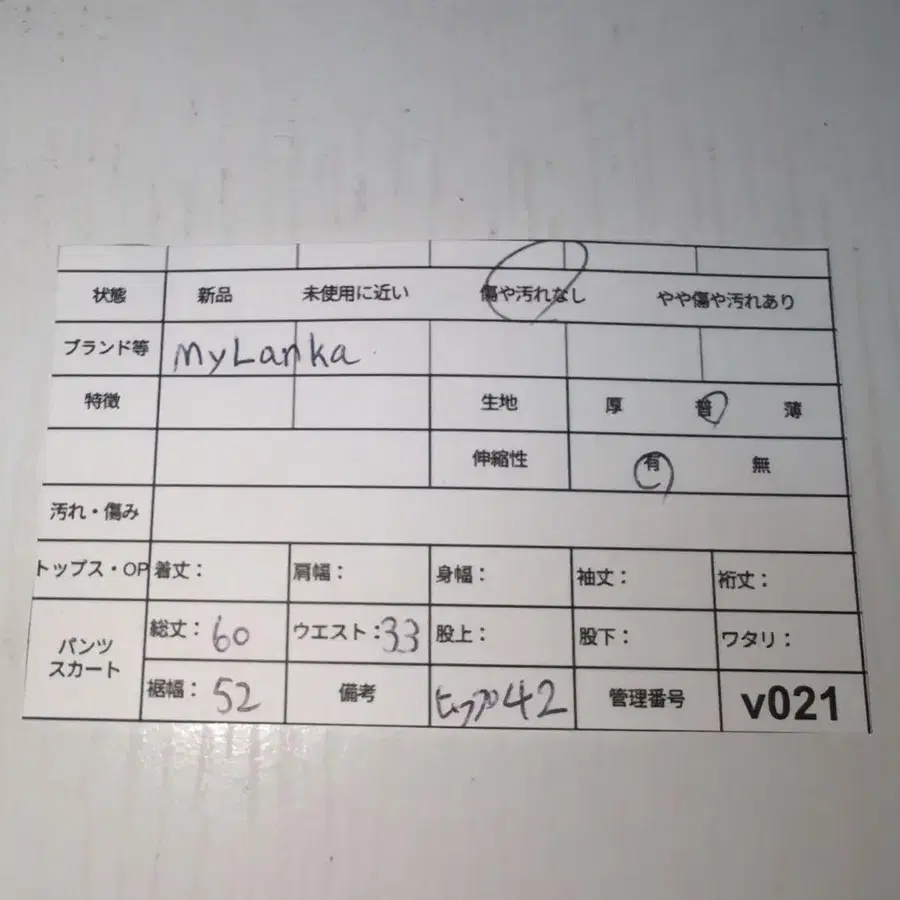 状態 新品 未使用に近い 傷や汚れなし やや傷や汚れあり
ブランド等 MyLanka
特徴 生地 厚 普 薄
伸縮性 有 無
汚れ・傷み
トップス・OP 着丈： 肩幅： 身幅： 袖丈： 裄丈：
パンツ スカート
総丈：60 ウエスト：33 股上： 股下： ワタリ：
裾幅：52 備考 ヒップ42 管理番号 v021